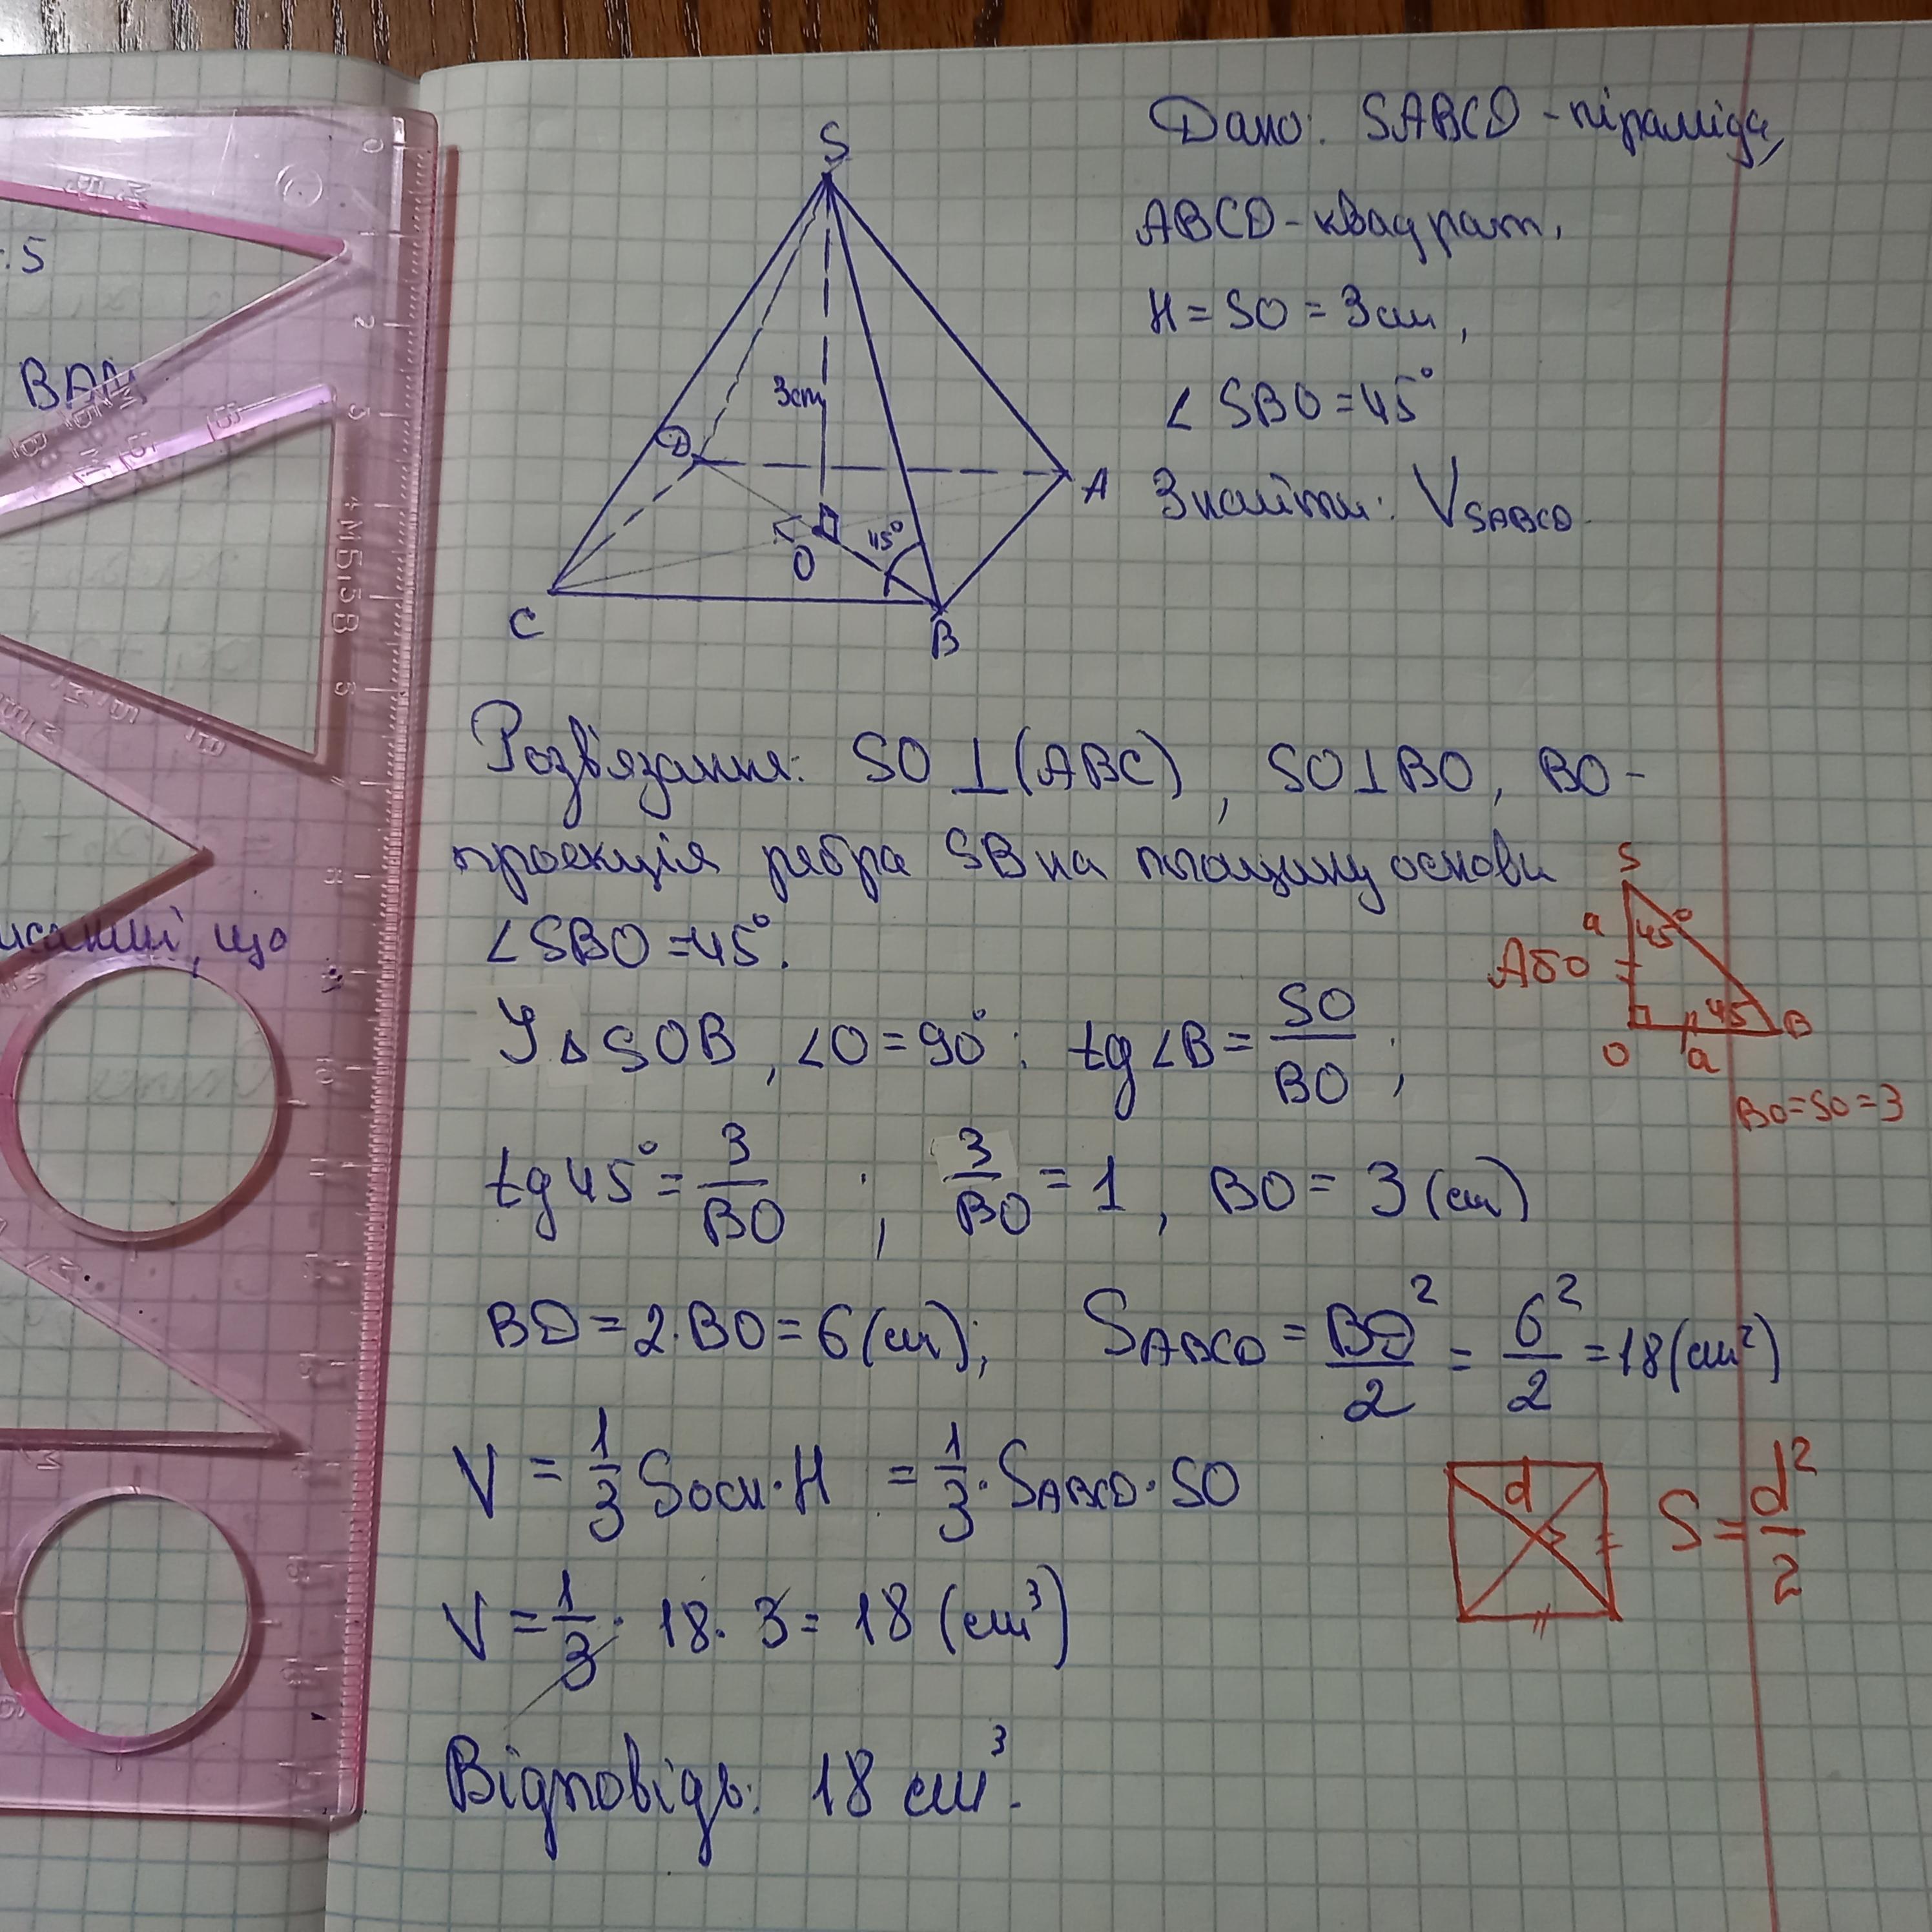 Дано: SABCD - піраміда,
ABCD - квадрат,
H = SO = 3 см,
∠ SBO = 45°
Знайти: V SABCD.
S
3cm
D
A
45°
O
C
B
Розв'язання: SO ⊥ (ABC), SO ⊥ BO, BO -
проекція ребра SB на площину основи
∠SBO = 45°.
У △ SOB, ∠O = 90°: tg∠B = SO/BO;
tg 45° = 3/BO; 3/BO = 1, BO = 3 (см)
BD = 2·BO = 6 (см); S ABCD = BD²/2 = 6²/2 = 18 (см²)
V = 1/3 Sосн·H = 1/3·S ABCD·SO
V = 1/3 · 18 · 3 = 18 (см³)
Відповідь: 18 см³.
Або
S
a
45°
45
O
a
B
BO = SO = 3
d
S = d²/2
:5
ВАМ
що
0
1
2
3
5
8
9
10
11
12